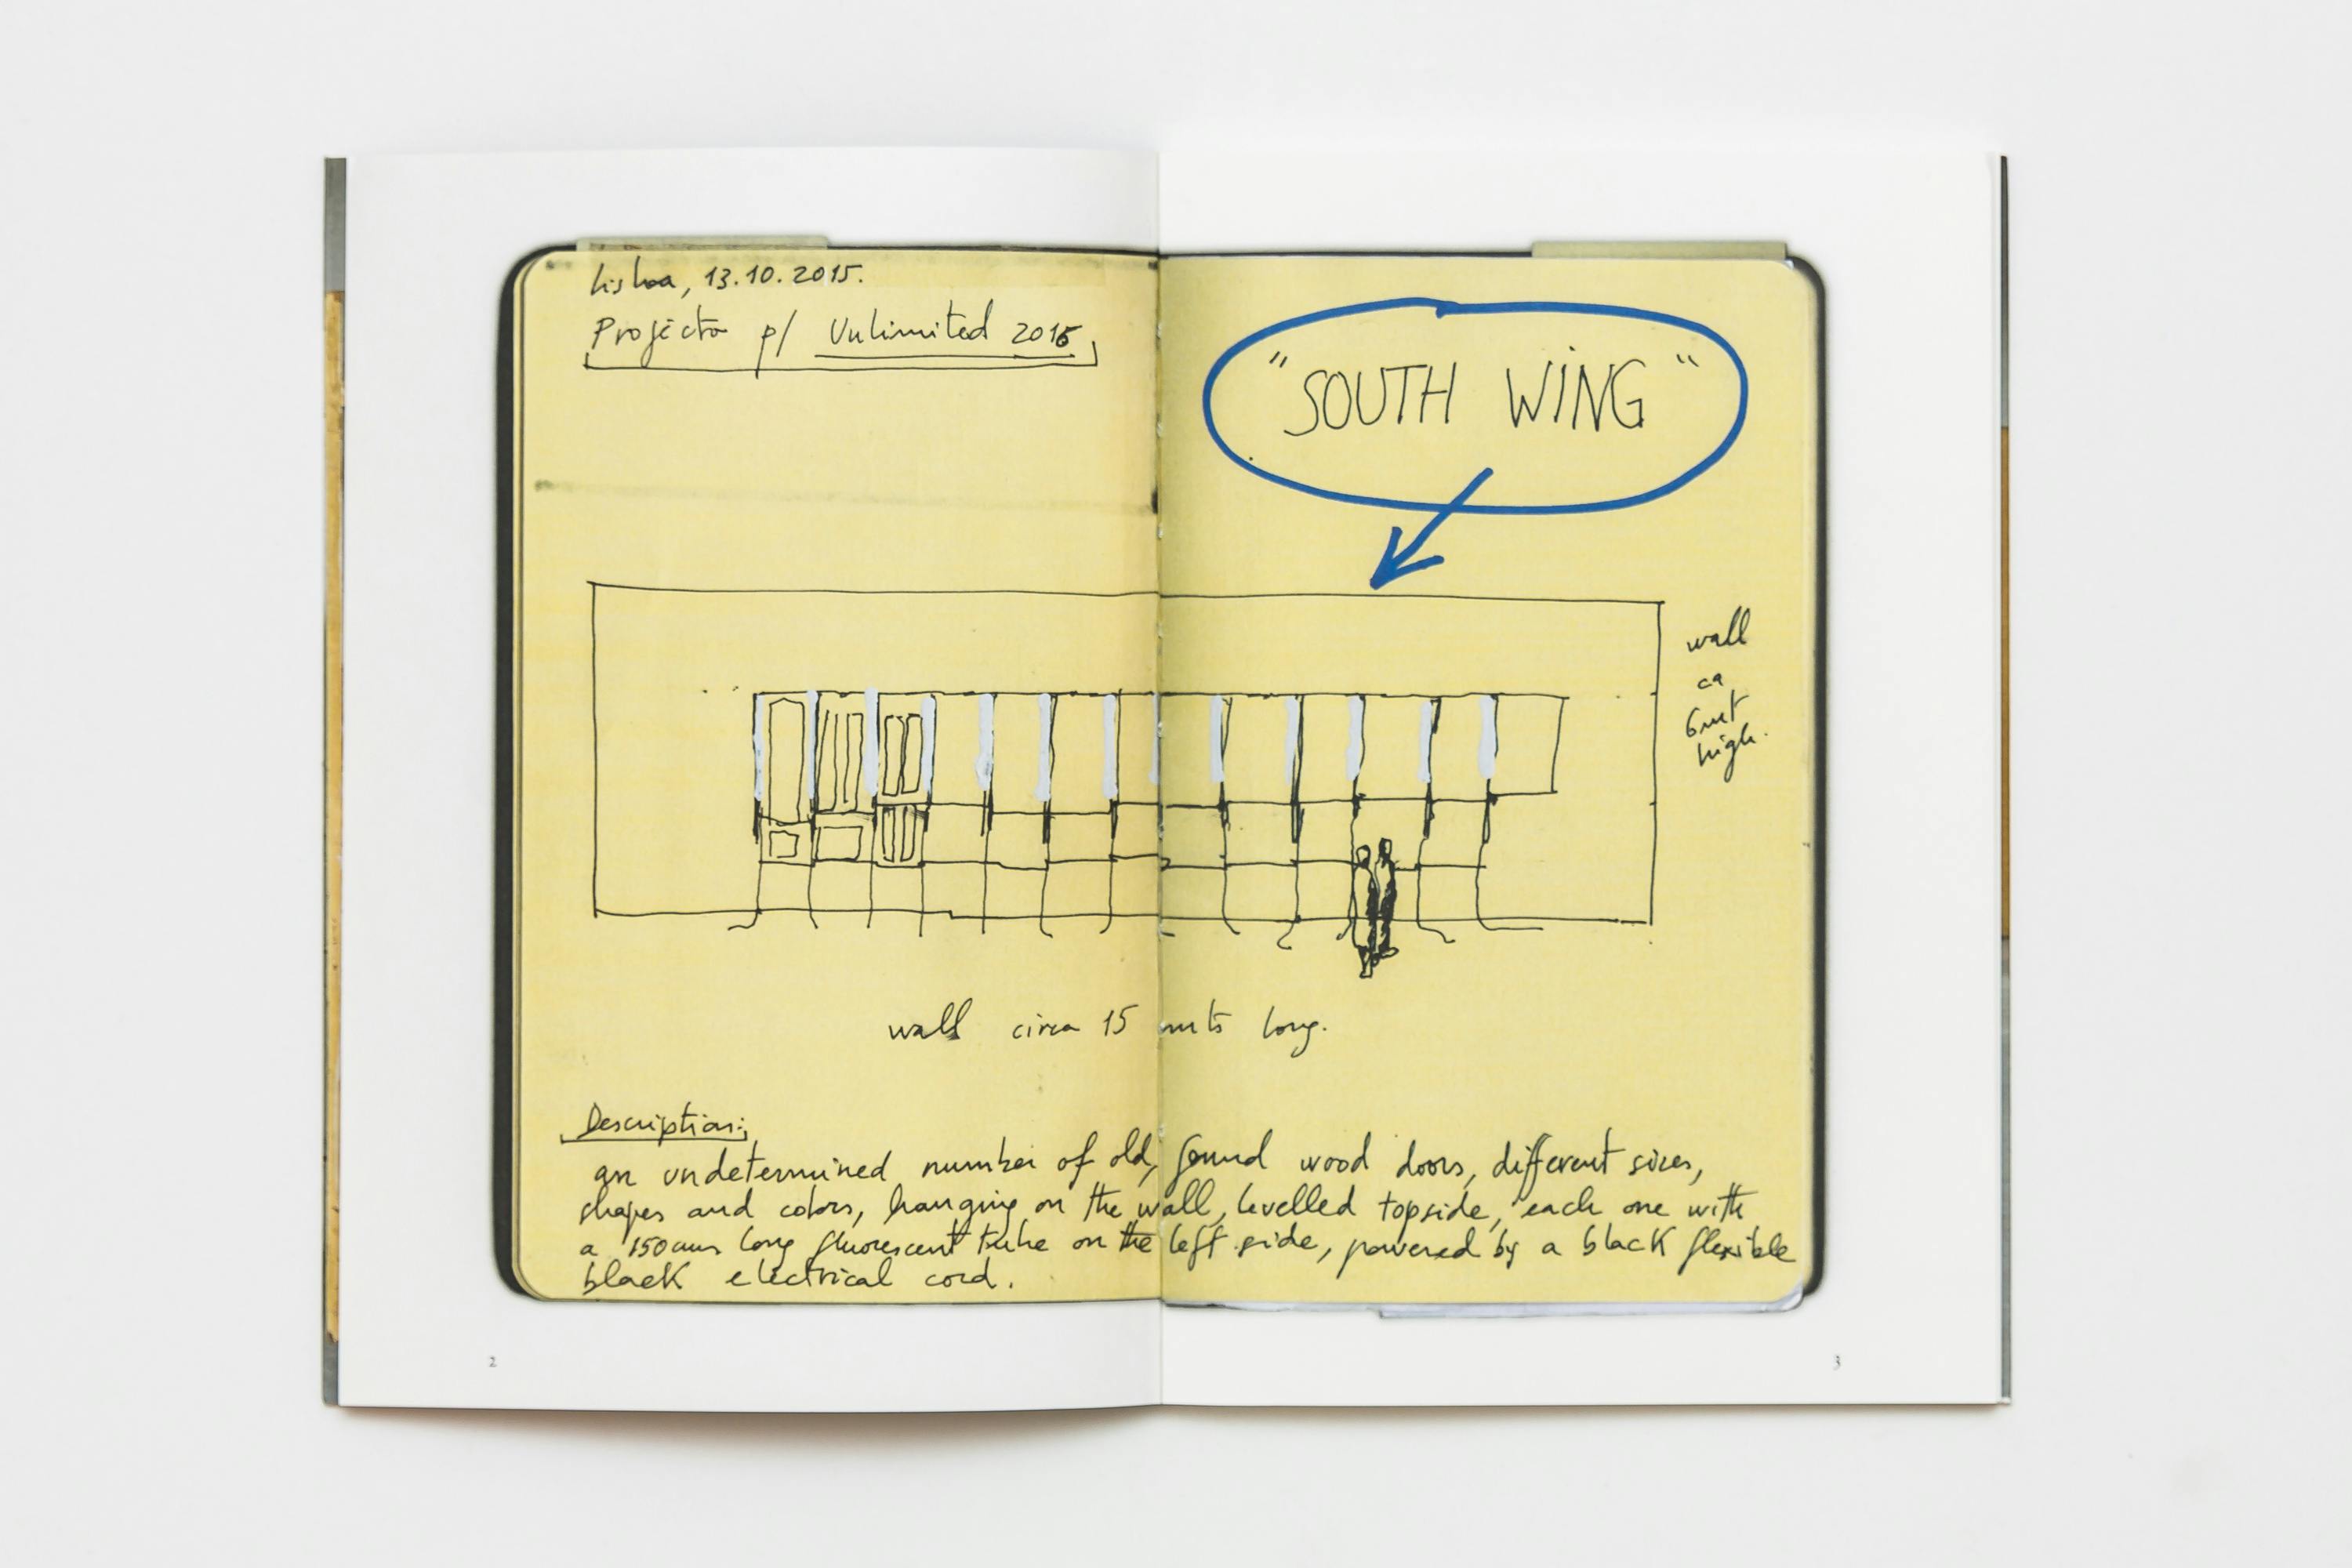 Lisboa, 13.10.2015.
Projecto p/ Unlimited 2016
"SOUTH WING"
wall
ca
6mt
high.
wall circa 15 mts long.
Description:
an undetermined number of old, found wood doors, different sizes,
shapes and colors, hanging on the wall, levelled topside, each one with
a 150cms long fluorescent tube on the left side, powered by a black flexible
black electrical cord.
2
3